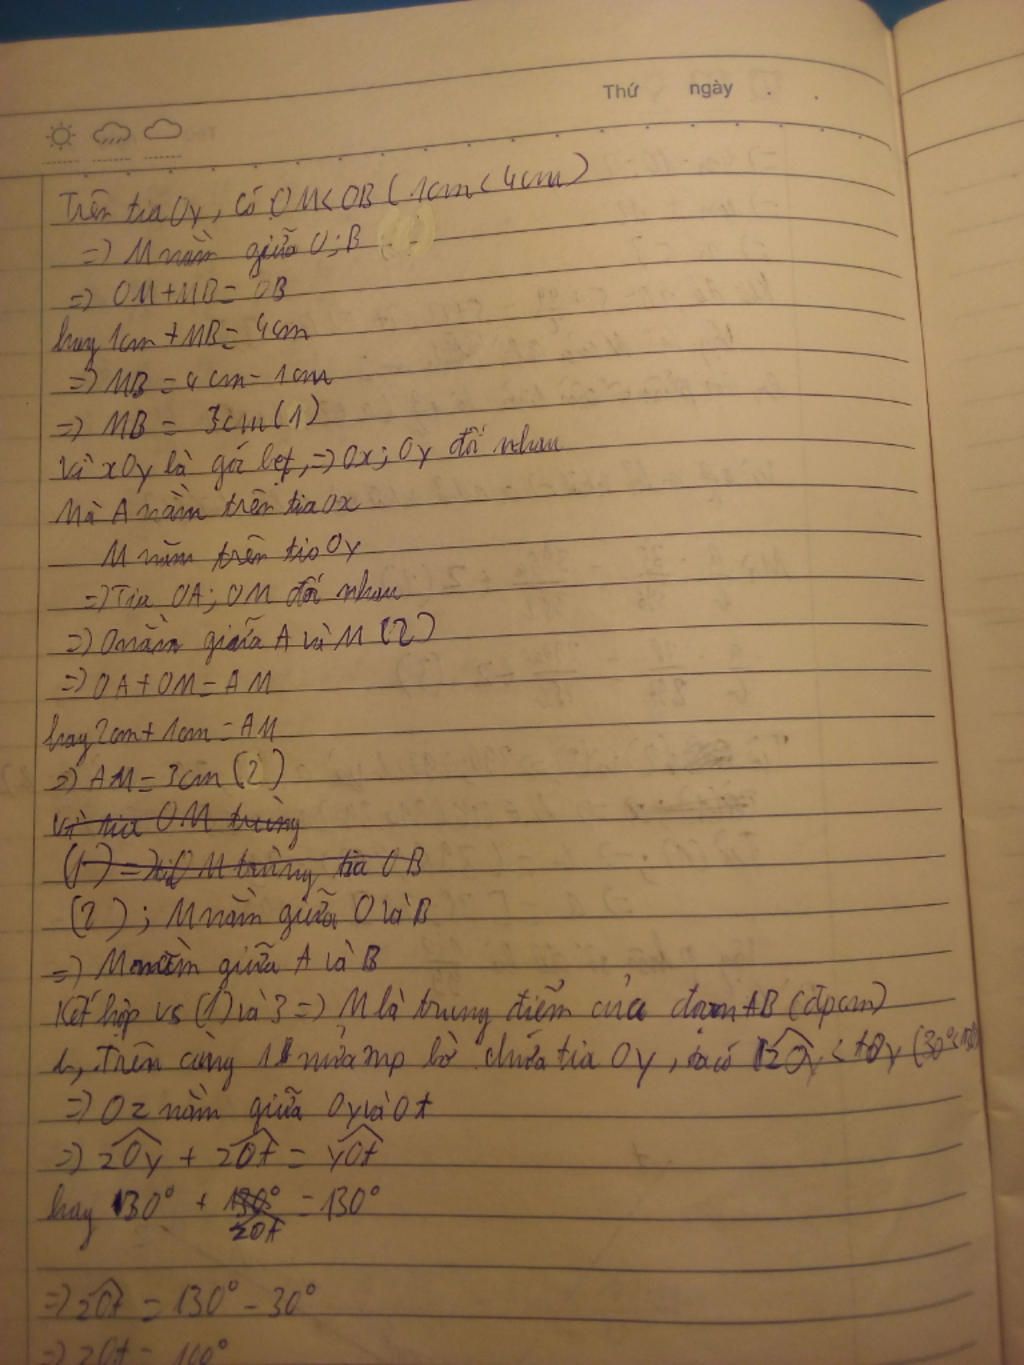 Thứ ngày . .
Trên tia Oy, có OM<OB (1cm<4cm)
=> M nằm giữa O;B
=> OM+MB= OB
hay 1cm+MB= 4cm
=> MB = 4cm-1cm
=> MB = 3cm(1)
Vì xOy là góc bẹt, => Ox; Oy đối nhau
Mà A nằm trên tia Ox
M nằm trên tia Oy
=> Tia OA; OM đối nhau
=> O nằm giữa A và M (2)
=> OA+OM= AM
hay 2cm+1cm=AM
=> AM=3cm(2)
Vì tia OM trùng
(1) => tia OM trùng tia OB
(2); M nằm giữa O và B
=> M nằm giữa A và B
Kết hợp vs (1) và 3 => M là trung điểm của đoạn AB (đpcm)
b, Trên cùng 1 nửa mp bờ chứa tia Oy, ta có zOy < tOy (30°<130°)
=> Oz nằm giữa Oy và Ot
=> zOy + zOt = yOt
hay 30° + 130° = 130°
zOt
=> zOt = 130° - 30°
=> zOt = 100°